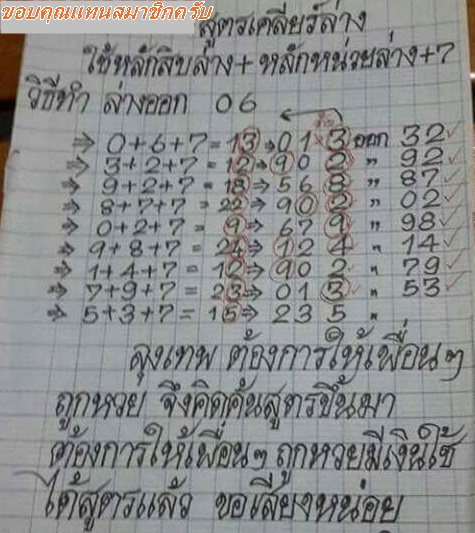 ขอบคุณแทนสมาชิกครับ
สูตรเคลียร์ล่าง
ใช้หลักสิบล่าง + หลักหน่วยล่าง+7
วิธีทำ ล่างออก 06
⇒ 0+6+7 = 13 ⇒ 0 1 3 ออก 32 ✓
⇒ 3+2+7 = 12 ⇒ 9 0 2 " 92 ✓
⇒ 9+2+7 = 18 ⇒ 5 6 8 " 87 ✓
⇒ 8+7+7 = 22 ⇒ 9 0 2 " 02 ✓
⇒ 0+2+7 = 9 ⇒ 6 7 9 " 98 ✓
⇒ 9+8+7 = 24 ⇒ 1 2 4 " 14 ✓
⇒ 1+4+7 = 12 ⇒ 9 0 2 " 79 ✓
⇒ 7+9+7 = 23 ⇒ 0 1 3 " 53 ✓
⇒ 5+3+7 = 15 ⇒ 2 3 5 "
ลุงเทพ ต้องการให้เพื่อนๆ
ถูกหวย จึงคิดค้นสูตรขึ้นมา
ต้องการให้เพื่อนๆ ถูกหวยมีเงินใช้
ได้สูตรแล้ว ขอเสียงหน่อย